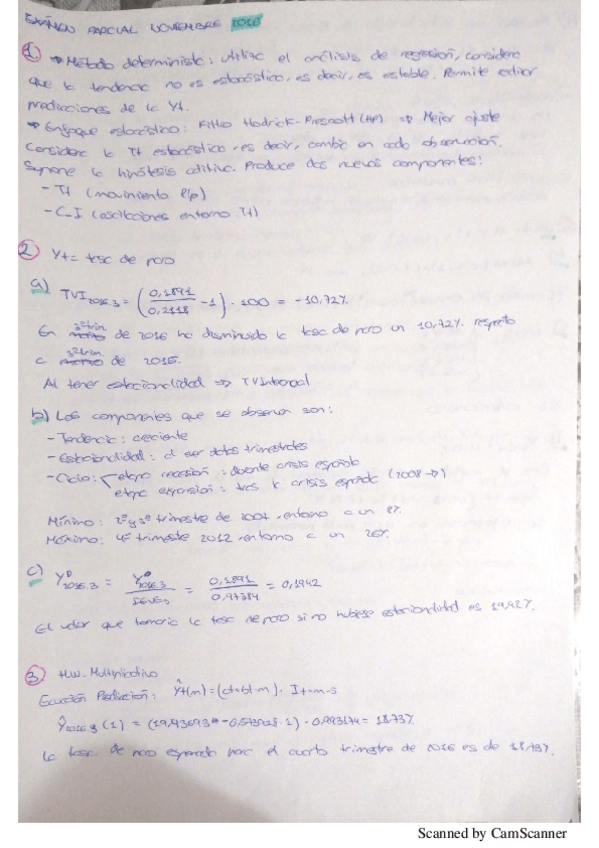 EXAMEN PARCIAL NOVIEMBRE 2016
1 → Método determinista: utiliza el análisis de regresión, considera
que la tendencia no es estocástica, es decir, es estable. Permite
predicciones de la Yt.
→ Enfoque estocástico: Filtro Hodrick-Prescott (HP) → Mejor ajuste
Considera la Tt estocástica, es decir, cambia en cada observación.
Supone la hipótesis aditiva. Produce dos nuevos componentes:
- Tt (movimiento l/p)
- C-I (oscilaciones entorno Tt)
2 Yt = tasa de paro
a) TVI2016.3 = (0,1891/0,2118 - 1) · 100 = -10,72%
En 3º trim. de 2016 ha disminuido la tasa de paro un 10,72% respecto
a 3º trim. de 2015.
Al tener estacionalidad → TVInteranual
b) Los componentes que se observan son:
- Tendencia: creciente
- Estacionalidad: al ser datos trimestrales
- Ciclo: etapa recesión: durante crisis española
etapa expansión: tras la crisis española (2008→)
Mínimo: 2º y 3º trimestre de 2007 entorno a un 8%
Máximo: 4º trimestre 2012 entorno a un 26%
c) YD2016.3 = Y2016.3 / = 0,1891/0,97384 = 0,1942
El valor que tomaría la tasa de paro si no hubiese estacionalidad es 19,42%.
3 H.W. Multiplicativo
Ecuación Predicción: Ŷt(m) = (at+bt·m) · It+m-s
Ŷ2016.3 (1) = (19,43693 - 0,573928·1) · 0,993174 = 18,73%
La tasa de paro esperada para el cuarto trimestre de 2016 es de 18,73%.
Scanned by CamScanner